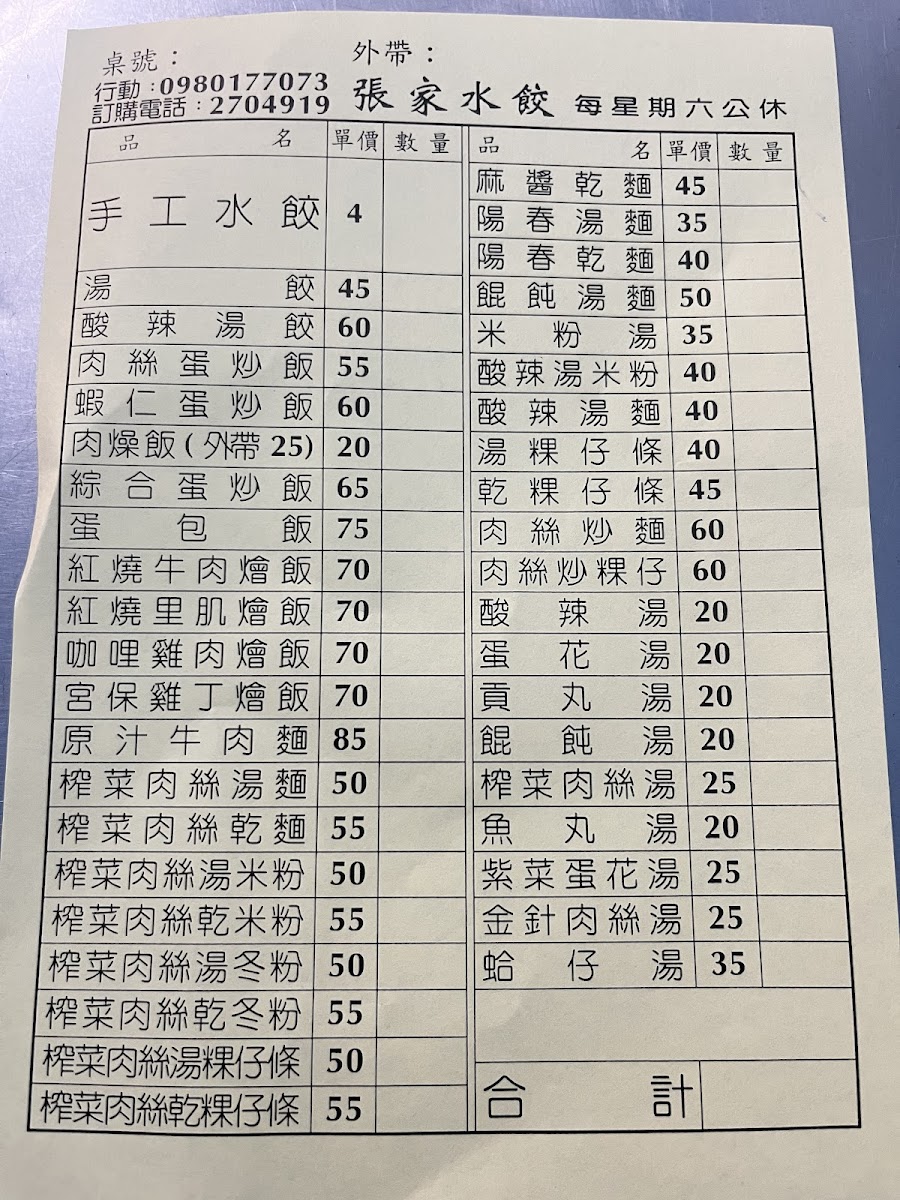 桌號： 外帶：
行動：0980177073
訂購電話：2704919 張家水餃 每星期六公休
品名 單價 數量
手工水餃 4
湯餃 45
酸辣湯餃 60
肉絲蛋炒飯 55
蝦仁蛋炒飯 60
肉燥飯(外帶25) 20
綜合蛋炒飯 65
蛋包飯 75
紅燒牛肉燴飯 70
紅燒里肌燴飯 70
咖哩雞肉燴飯 70
宮保雞丁燴飯 70
原汁牛肉麵 85
榨菜肉絲湯麵 50
榨菜肉絲乾麵 55
榨菜肉絲湯米粉 50
榨菜肉絲乾米粉 55
榨菜肉絲湯冬粉 50
榨菜肉絲乾冬粉 55
榨菜肉絲湯粿仔條 50
榨菜肉絲乾粿仔條 55
品名 單價 數量
麻醬乾麵 45
陽春湯麵 35
陽春乾麵 40
餛飩湯麵 50
米粉湯 35
酸辣湯米粉 40
酸辣湯麵 40
湯粿仔條 40
乾粿仔條 45
肉絲炒麵 60
肉絲炒粿仔 60
酸辣湯 20
蛋花湯 20
貢丸湯 20
餛飩湯 20
榨菜肉絲湯 25
魚丸湯 20
紫菜蛋花湯 25
金針肉絲湯 25
蛤仔湯 35
合計